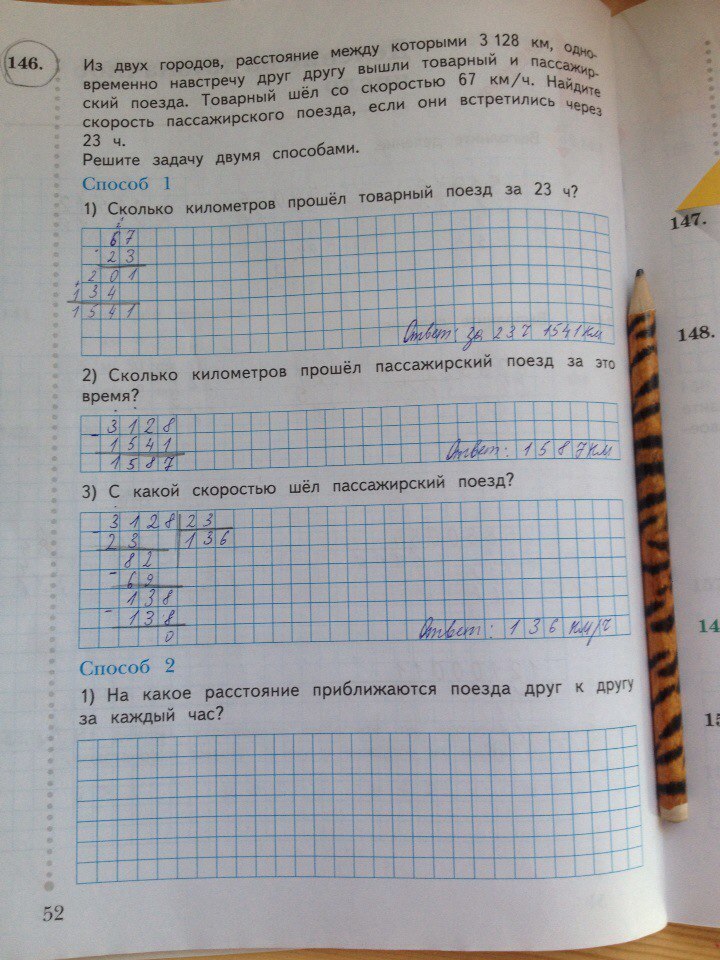 146.
Из двух городов, расстояние между которыми 3 128 км, одно-
временно навстречу друг другу вышли товарный и пассажир-
ский поезда. Товарный шёл со скоростью 67 км/ч. Найдите
скорость пассажирского поезда, если они встретились через
23 ч.
Решите задачу двумя способами.
Способ 1
1) Сколько километров прошёл товарный поезд за 23 ч?
2
67
· 23
201
134
1541
Ответ: за 23ч 1541км
2) Сколько километров прошёл пассажирский поезд за это
время?
- 3128
1541
1587
Ответ: 1587км
3) С какой скоростью шёл пассажирский поезд?
- 3128 23
23 136
82
- 69
138
- 138
0
Ответ: 136 км/ч
Способ 2
1) На какое расстояние приближаются поезда друг к другу
за каждый час?
52
147.
148.
14
15